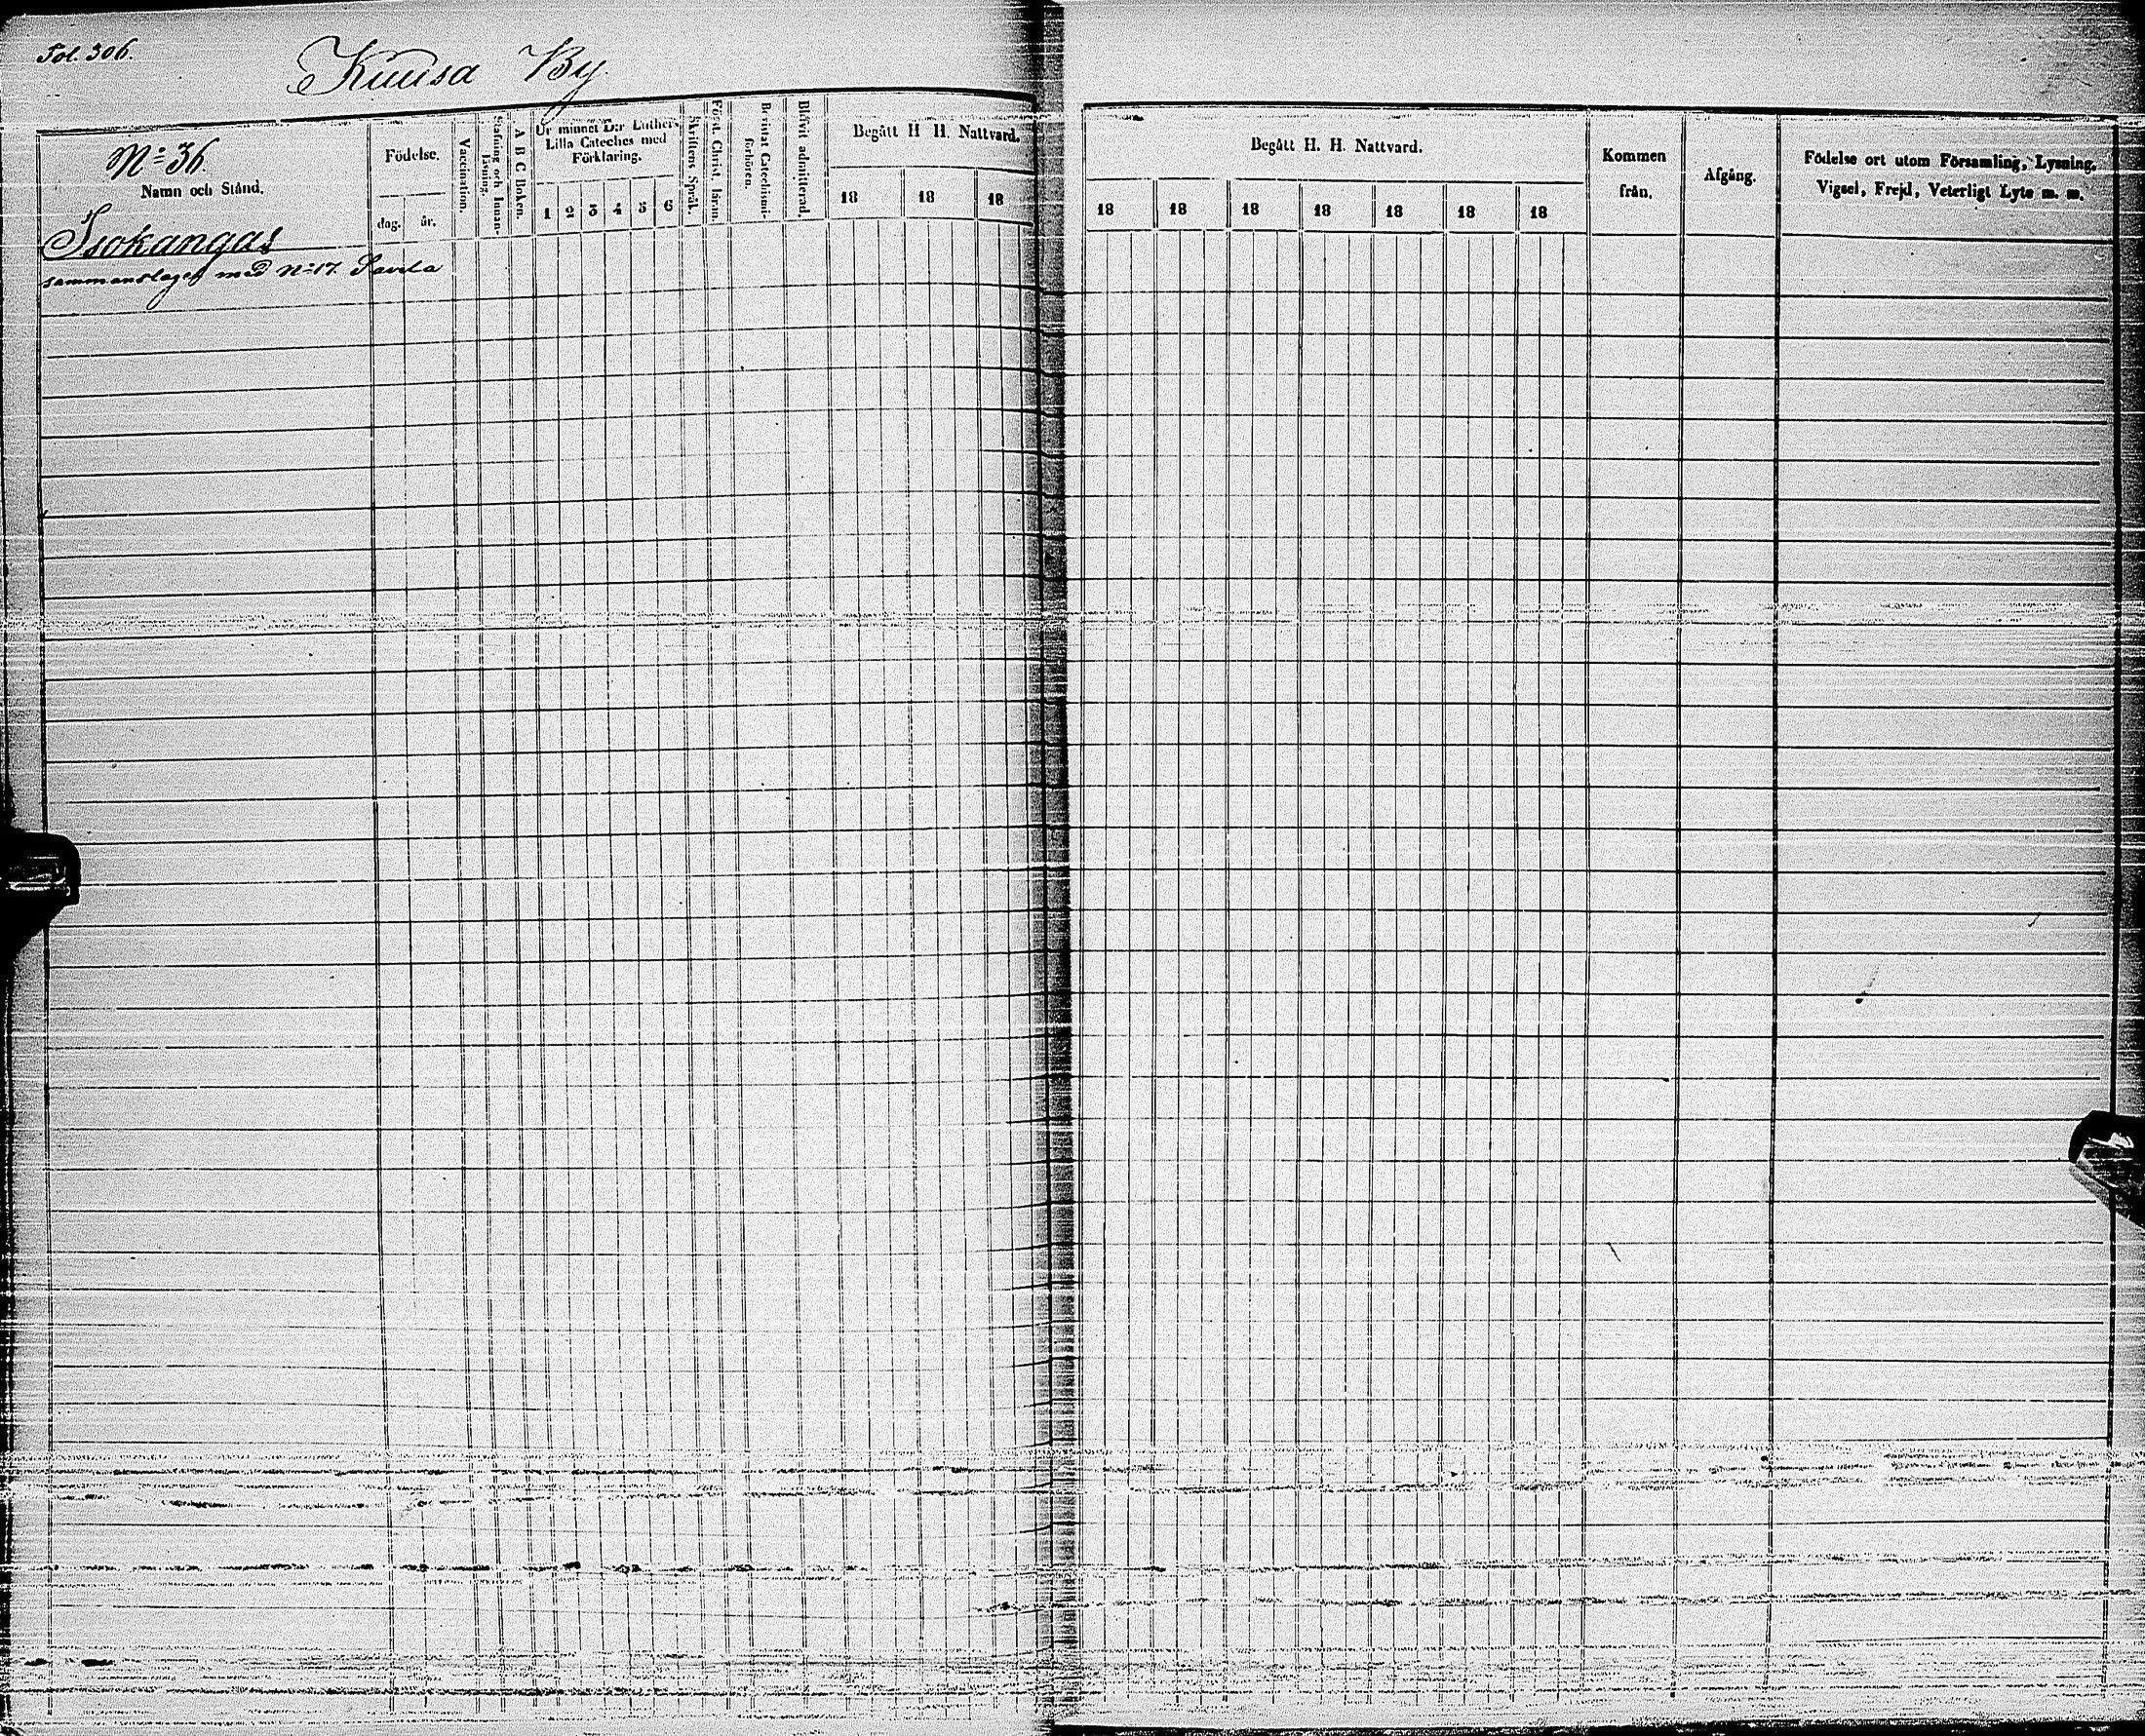 Fol. 306.
Kuusa By.
No 36.
Namn och Stånd.
Födelse.
dag. år.
Vaccination.
Stafning och Innan-
läsning.
A B C Boken.
Ur minnet D:r Luthers
Lilla Cateches med
Förklaring.
1 2 3 4 5 6
Skriftens Språk.
Först. Christ. läran.
Bevistat Catechismi-
förhören.
Blifvit admitterad.
Begått H H. Nattvard.
18 18 18
Isokangas
sammanslaget med No 17. Savela
Begått H. H. Nattvard.
18 18 18 18 18 18 18
Kommen
från.
Afgång.
Födelse ort utom Församling, Lysning,
Vigsel, Frejd, Veterligt Lyte m. m.